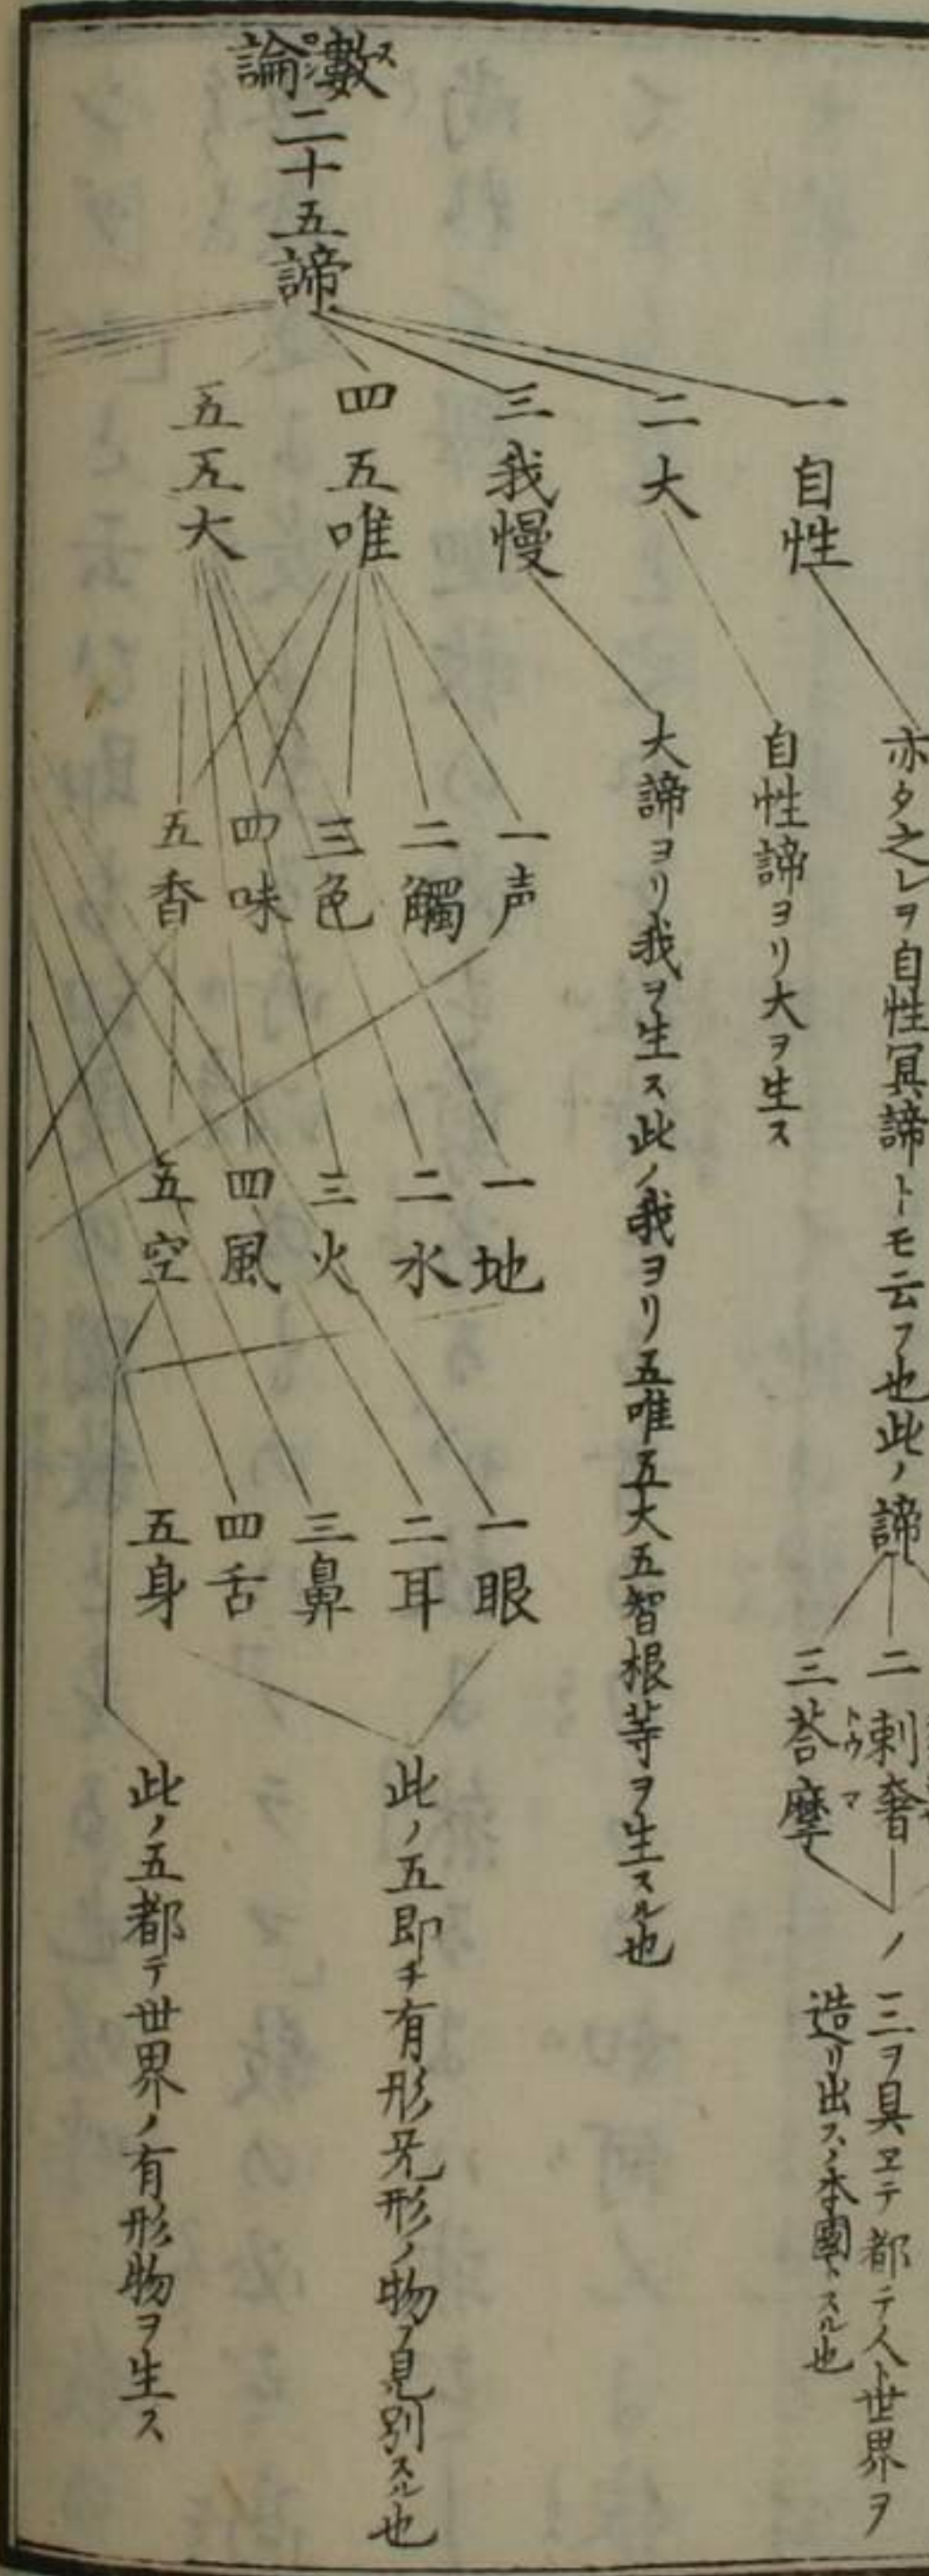 數論二十五諦
一 自性
亦タ之レヲ自性冥諦トモ云フ也此ノ諦
二 剌奢
三 荅摩
ノ三ヲ具ヱテ都テ人ト世界ヲ
造リ出ス本
二 大
自性諦ヨリ大ヲ生ス
三 我慢
大諦ヨリ我ヲ生ス此ノ我ヨリ五唯五大五智根等ヲ生スル也
四 五唯
一 声
二 觸
三 色
四 味
五 香
五 五大
一 地
二 水
三 火
四 風
五 空
一 眼
二 耳
三 鼻
四 舌
五 身
此ノ五即チ有形无形ノ物ヲ見別スル也
此ノ五都テ世界ノ有形物ヲ生ス